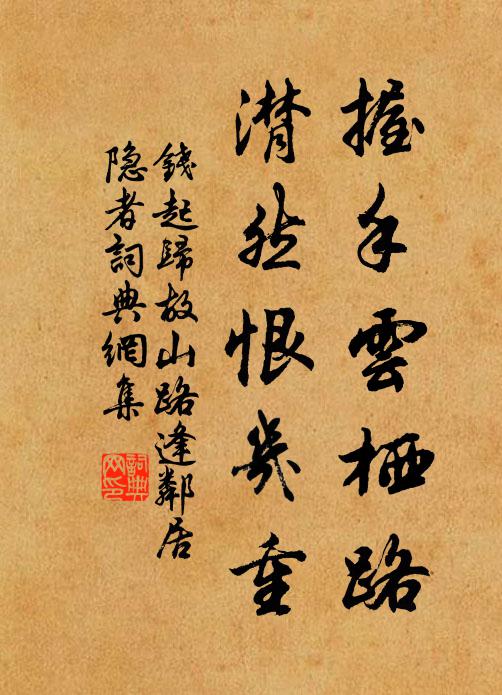 握手雲栖路
潸然恨幾重
錢起歸故山路逢鄰居
隐者詞典網集
詞典網印